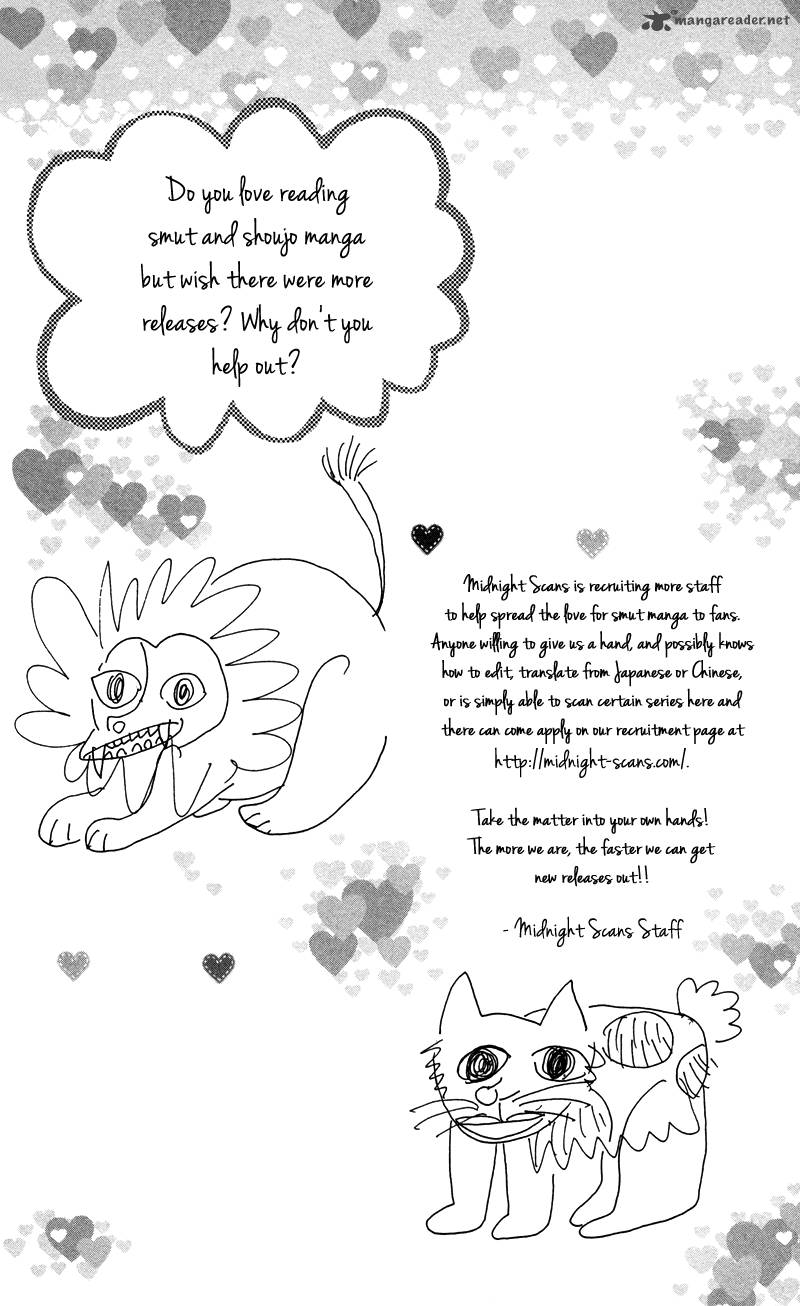 mangareader.net
Do you love reading
smut and shoujo manga
but wish there were more
releases? Why don't you
help out?
Midnight Scans is recruiting more staff
to help spread the love for smut manga to fans.
Anyone willing to give us a hand, and possibly knows
how to edit, translate from Japanese or Chinese,
or is simply able to scan certain series here and
there can come apply on our recruitment page at
http://midnight-scans.com/.
Take the matter into your own hands!
The more we are, the faster we can get
new releases out!!
- Midnight Scans Staff